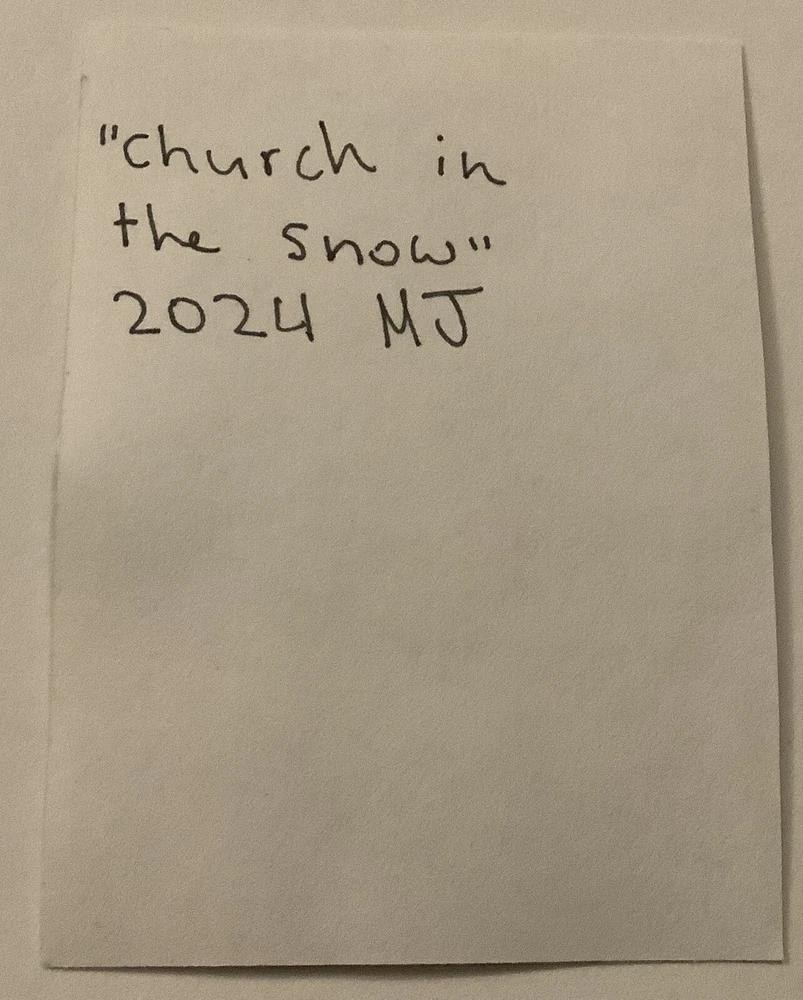 "church in
the snow"
2024 MJ